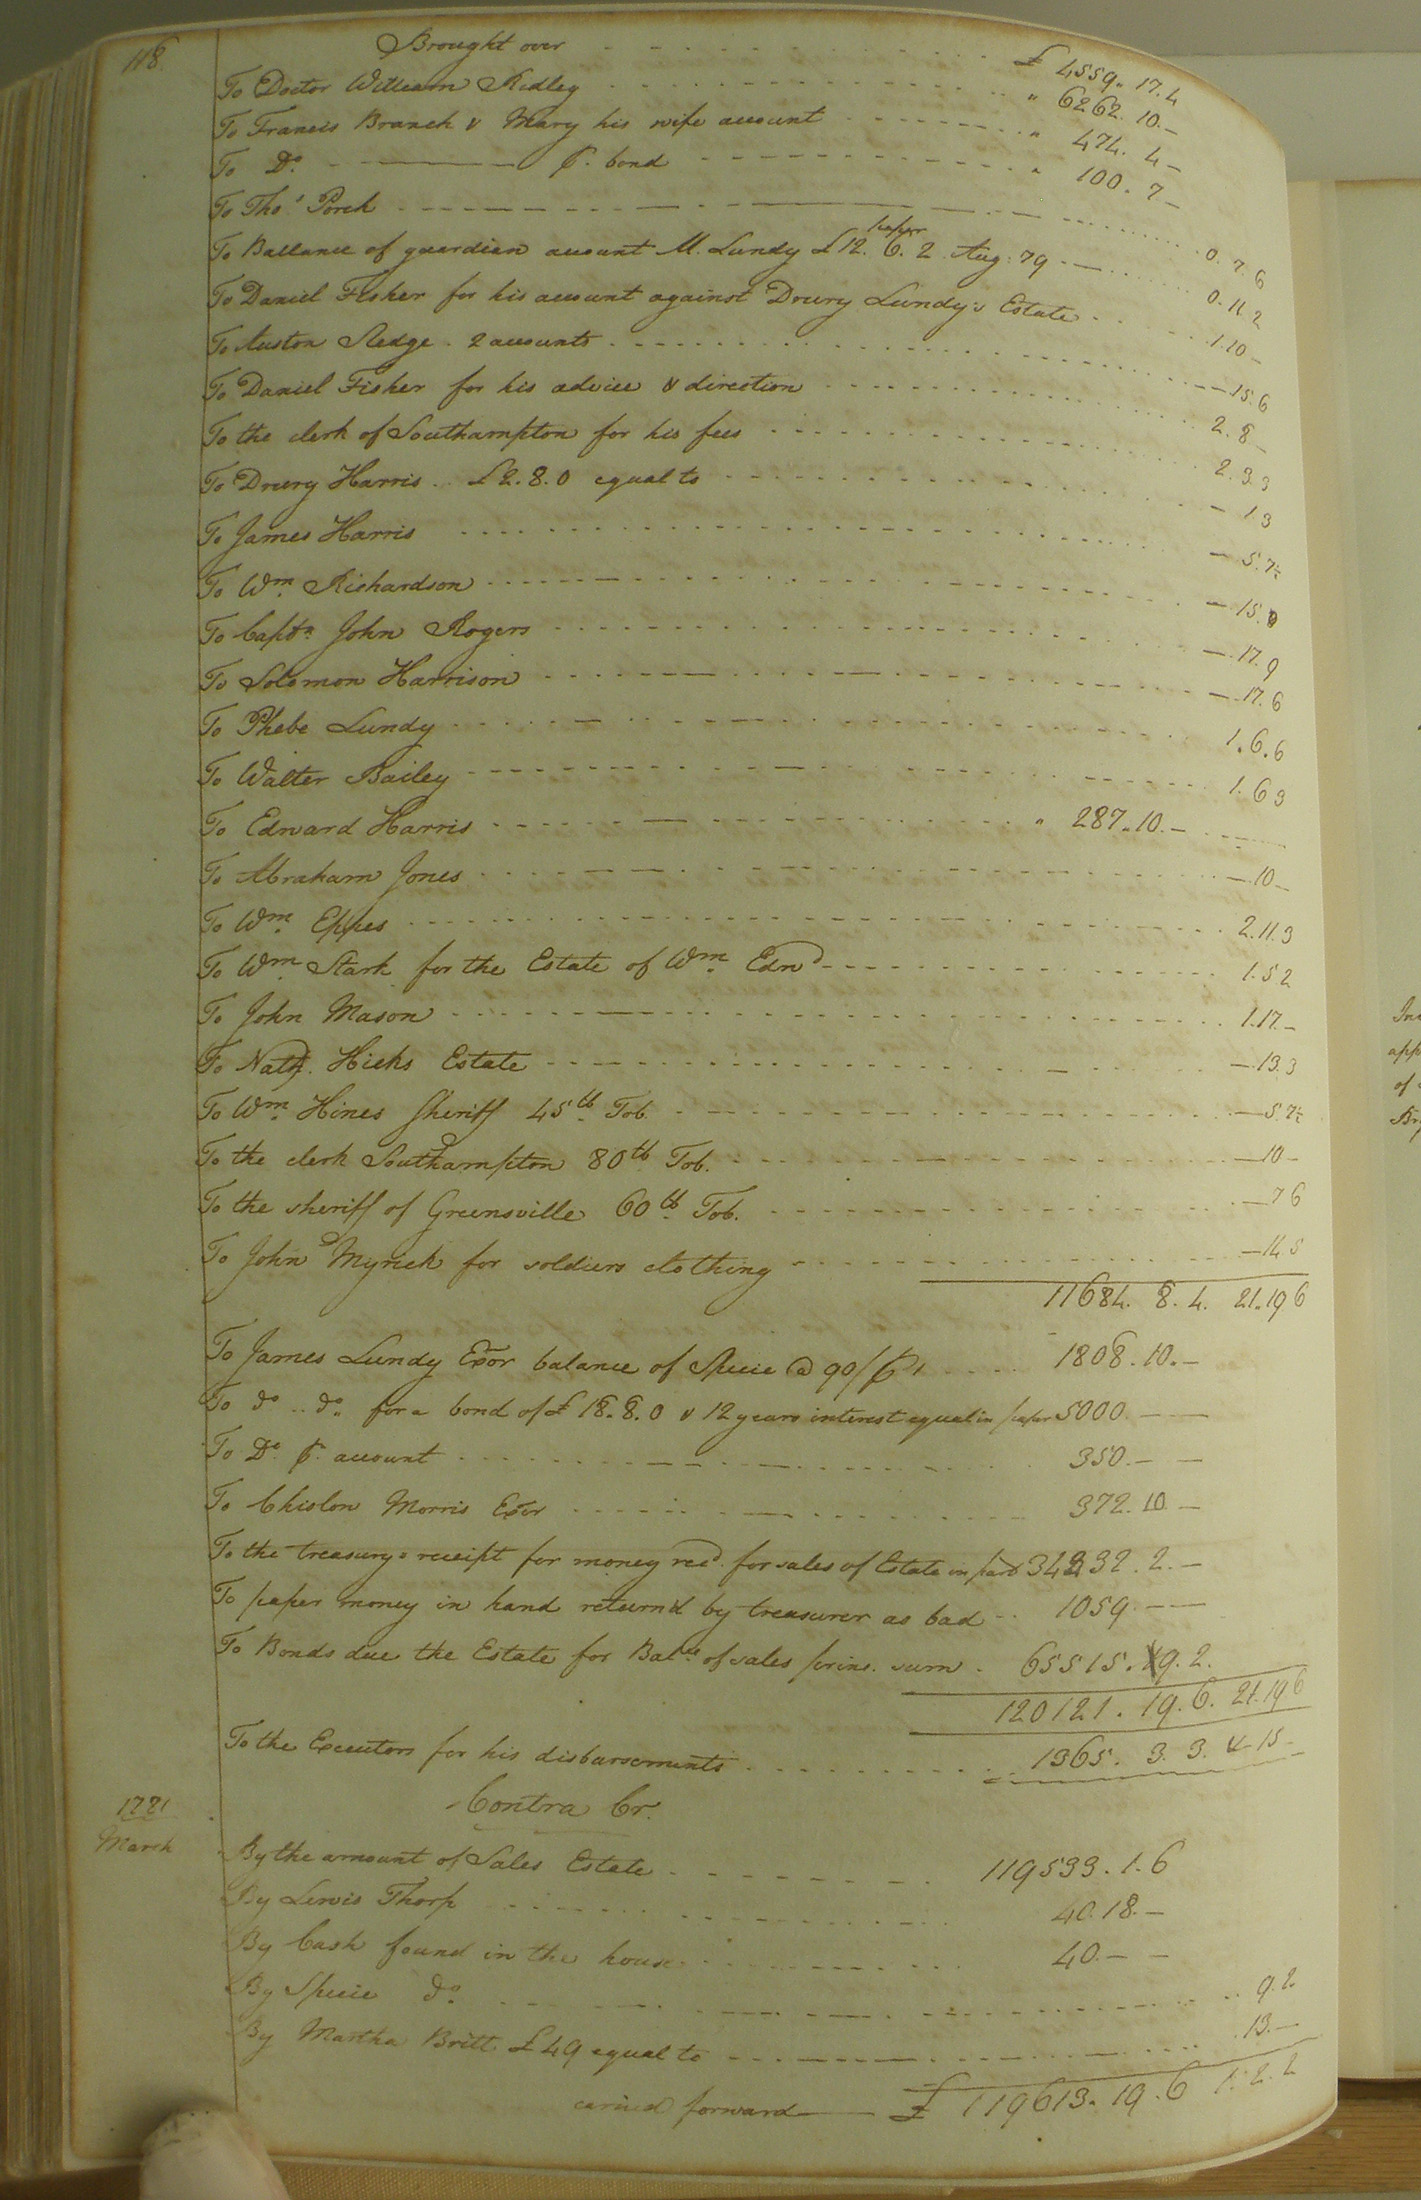 118.
Brought over £ 4559. 17. 4
To Doctor William Ridley " 6262. 10. –
To Francis Branch & Mary his wife account " 474. 4 –
To Do. ₱. bond " 100. 7 –
To Thos. Porch 0. 7. 6
To Ballance of guardian account M. Lundy £12. 6. 2 paper Aug: 79 0. 11. 2
To Daniel Fisher for his account against Drury Lundy's Estate 1. 10 –
To Auston Sledge. 2 accounts – 15. 6
To Daniel Fisher for his advice & direction 2. 8 –
To the clerk of Southampton for his fees 2. 3. 3
To Drury Harris.. £2. 8. 0 equal to – 1 3
To James Harris – 5. 7½
To Wm. Richardson – 15. 0
To Captn. John Rogers – 17. 9
To Solomon Harrison – 17. 6
To Phebe Lundy 1. 6. 6
To Walter Bailey 1. 6 3
To Edward Harris " 287. 10. –
To Abraham Jones – 10 –
To Wm. Eppes 2. 11. 3
To Wm. Stark for the Estate of Wm. Edwd 1. 5 2
To John Mason 1. 17. –
To Nathl. Hicks Estate – 13. 3
To Wm. Hines Sheriff 45 lb Tob. – 5. 7½
To the clerk Southampton 80 lb Tob. – 10 –
To the sheriff of Greensville 60 lb. Tob. – 7 6
To John Myrick for soldiers clothing – 14. 5
11684. 8. 4. 21. 19 6
To James Lundy Exor balance of Specie @ 90/₱1 1808. 10. –
To do .. do. for a bond of £18. 8. 0 & 12 years interest equal in paper 5000. – –
To Do. ₱. account 350. – –
To Chislon Morris Exor 372. 10 –
To the treasurys receipt for money recd. for sales of Estate in part 34232. 2. –
To paper money in hand return'd by treasurer as bad 1059. – –
To Bonds due the Estate for Balce. of sales princ. sum. 65515. 19. 2.
120121. 19. 6. 21. 19 6
To the Executors for his disbursements 1365. 3. 3. 4. 15 –
Contra Cr.
1781
March
By the amount of Sales Estate 119533. 1. 6
By Lewis Thorp 40. 18. –
By Cash found in the house 40. – –
By Specie do. 9. 2
By Martha Britt £49 equal to 13. –
carried forward £ 119613. 19. 6 1. 2. 2